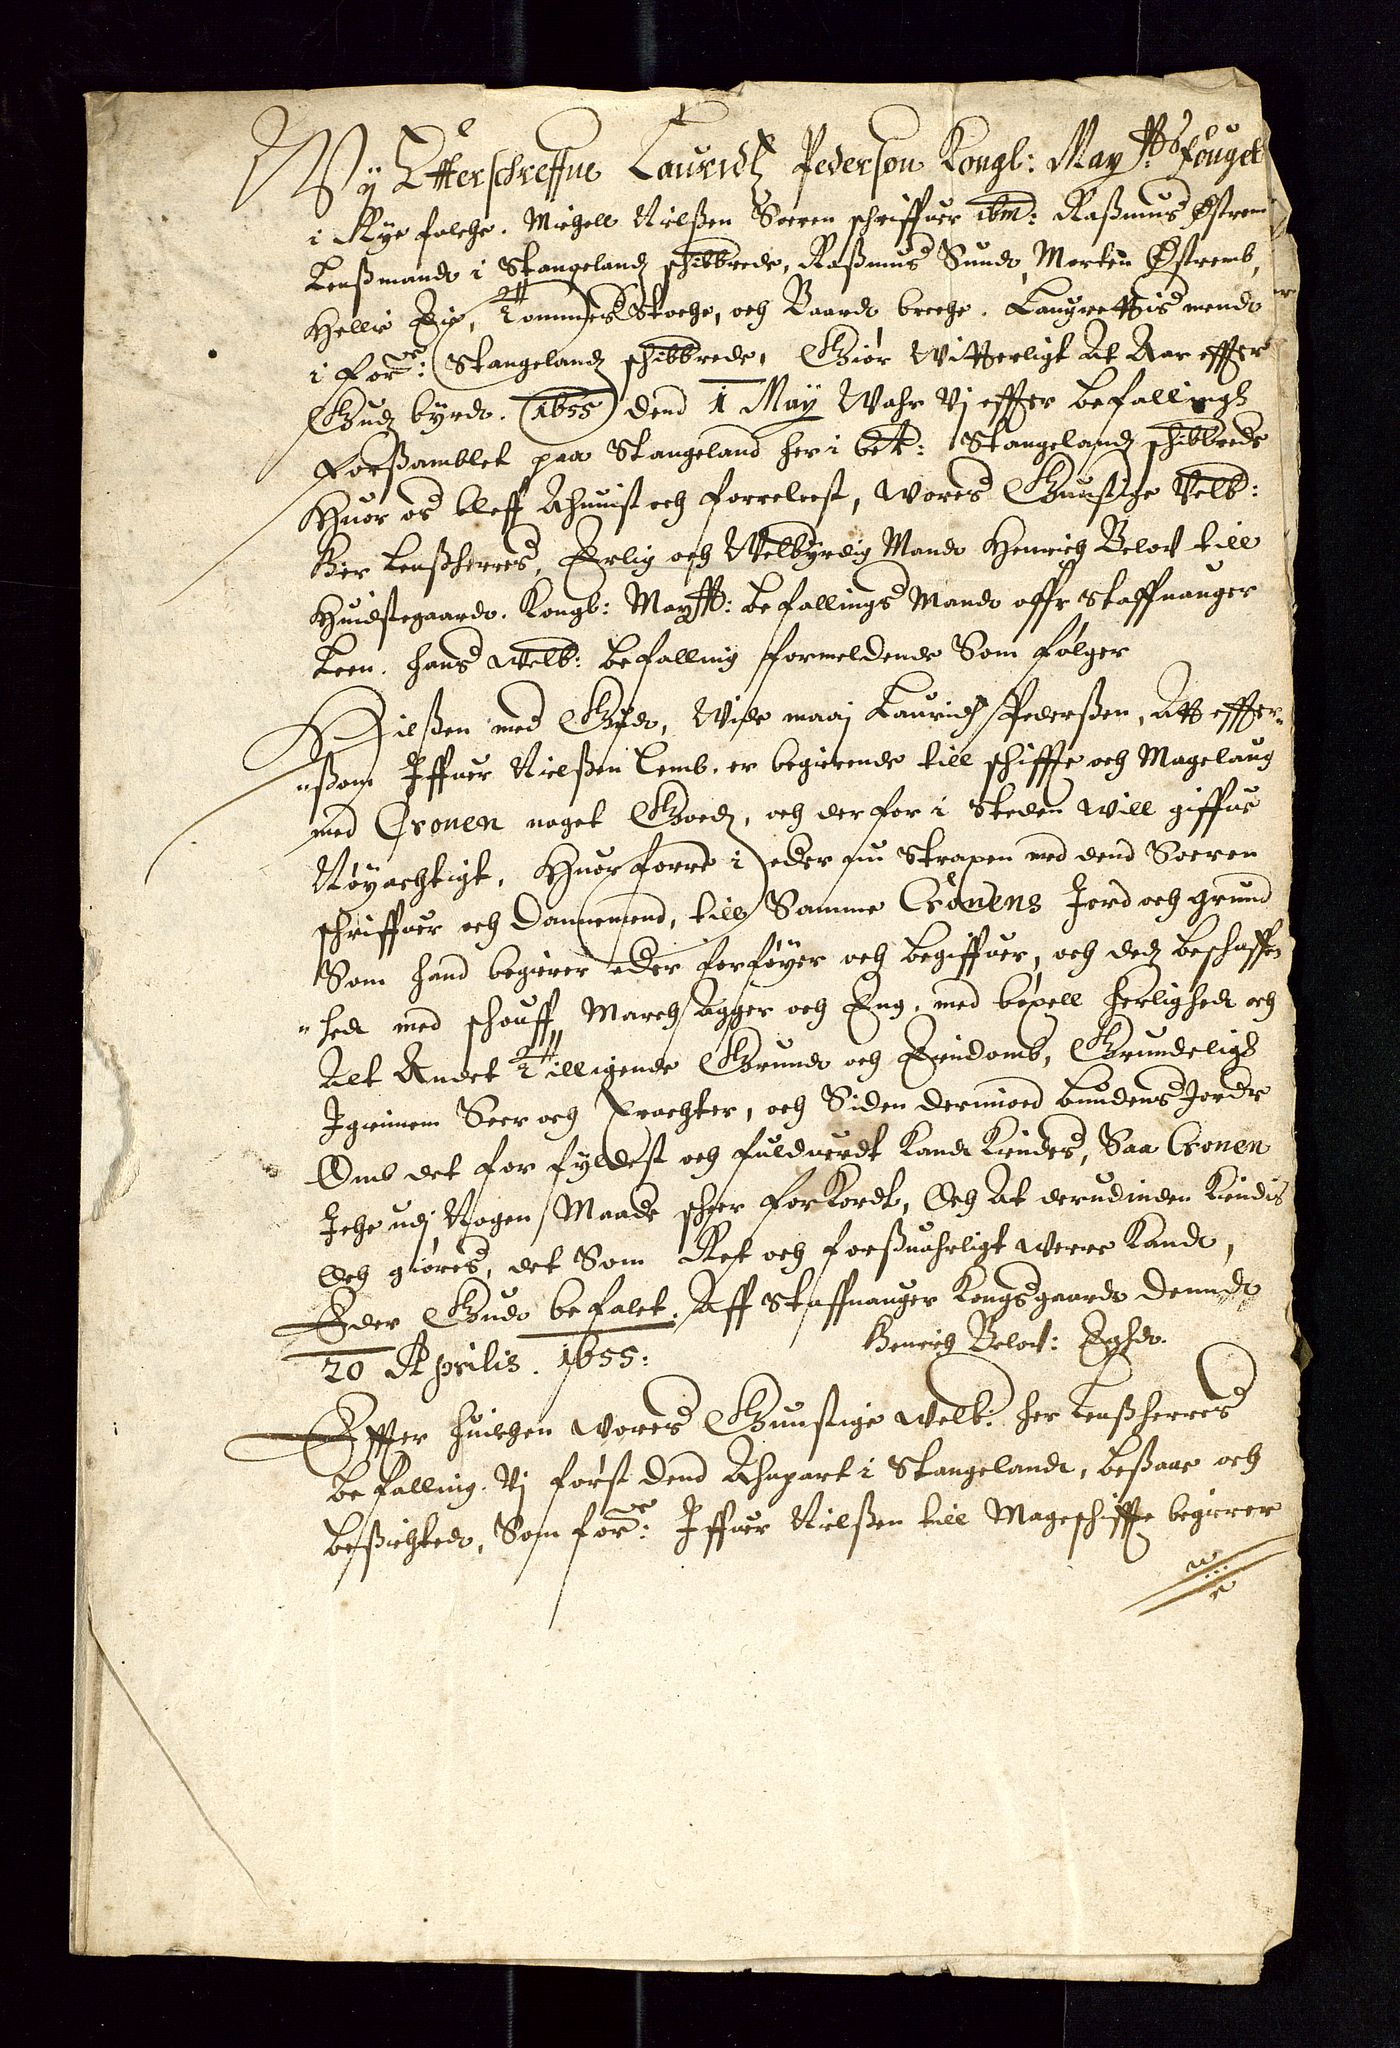 Wÿ Effterschreffne Lauridtz Pederson Kongl: May:tts fouget
i Rÿe folche. Michell Nielßen Soeren schriffuer ibm: Raßmus Østrem
Lenßmand i Stangelandz schibbrede, Raßmus Sund, Morten Østremb,
Hellie Eie, Tommes Stoche, och Baard breche. Laugrettis mend
i for:ne Stangelandz schibbrede, Giør Witterligt At Aar effter
Gudz bÿrd. 1655 dend 1 Maÿ Wahr Vj effter befallings
Forßamblet paa Stangeland her i bet: Stangelandz schibbrede
Huor os bleff Ahnuist och forreleest, Wores Gunstige Velb:
Her Lenßherres, Erlig och Welbÿrdig Mand Henrich Beloch till
Huidstegaard. Kongl: Maÿtt: befallings Mand offr Staffuanger
Leen. hans Welb: befalling formeldende Som følger
Hilßen med Gud, Wide maaj Lauridtz Pederßen, Att effter-
"ßom Iffuer Nielßen Lemb. er begierende till schiffte och Magelaug
med Cronen noget Goedz, och derfor i Steden will giffue
Nøÿachtigt, Huorforre i eder nu Straxen med dend Soeren
schriffuer och Dannemend, till Samme Cronens Jord och grund
Som hand begierer eder forføÿer och begiffuer, och dedz beschaffen
"hed med schouff, March Agger och Eng, med bexell herlighed och
Alt Andet Tilligende Grund och Eindomb, Grundeligh
Igiennem Seer och Erachter, och Siden dermoed bundens Jorde
Omb det for fÿldest och fulduerdt Kand Kiendes, Saa Cronen
Iche udj Nogen Maade scheer forKordt, Och At derudinden Kiendis
Och giøres, det Som Ret och forßuahrligt Werre Kand,
Eder Gud befalet. Aff Staffuanger Kongsgaard Dennd
20 Aprilis. 1655: Henrich Beloch: Eghd.
Effter huilchen Wores Gunstige Welb: her Lenßherres
befalling. Vj først dend Ahnpart i Stangeland, beßaae och
beßichted, Som for:ne Iffuer Nielßen till Mageschiffte begierer